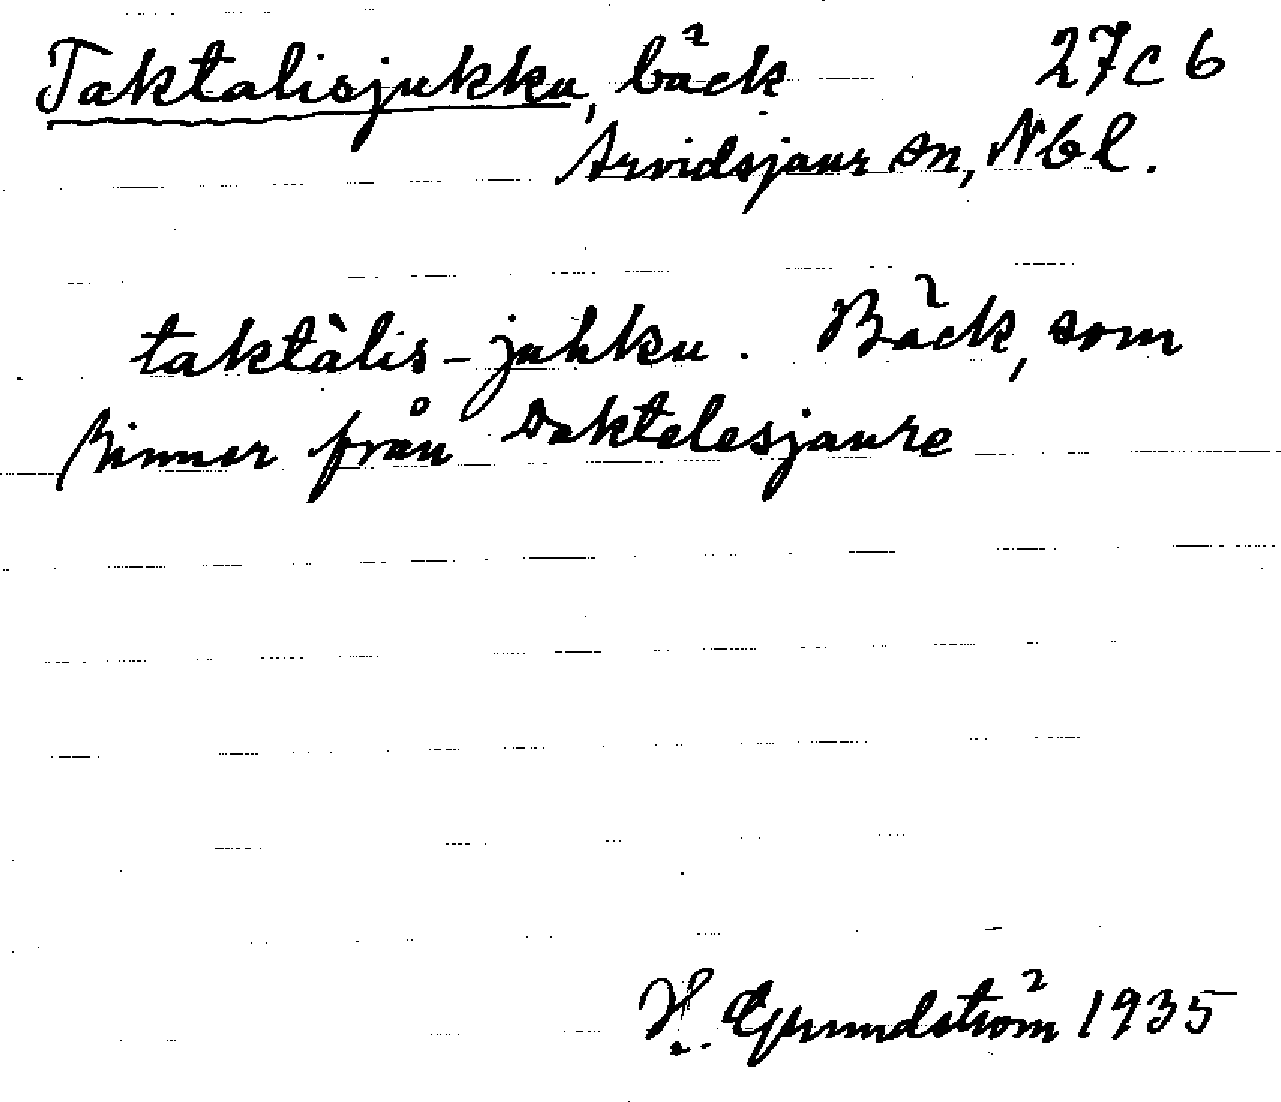 Taktalisjukku, bäck 27c6
Arvidsjaur sn, Nbl.
taktàlis-juhku. Bäck, som
rinner från Daktelesjaure
H. Grundström 1935